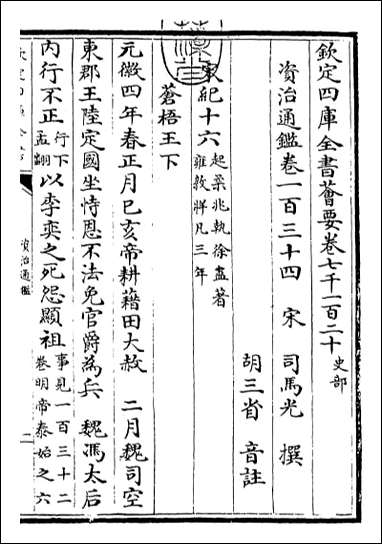 欽定四庫全書薈要卷七千一百二十 史部
資治通鑑卷一百三十四 宋 司馬光 撰
胡三省 音註
宋紀十六 起柔兆執徐盡著雍敦牂凡三年
蒼梧王下
元徽四年春正月己亥帝耕藉田大赦 二月魏司空
東郡王陸定國坐恃恩不法免官爵為兵 魏馮太后
內行不正 行下孟翻 以李奕之死怨顯祖 事見一百三十二卷明帝泰始之六
資治通鑑